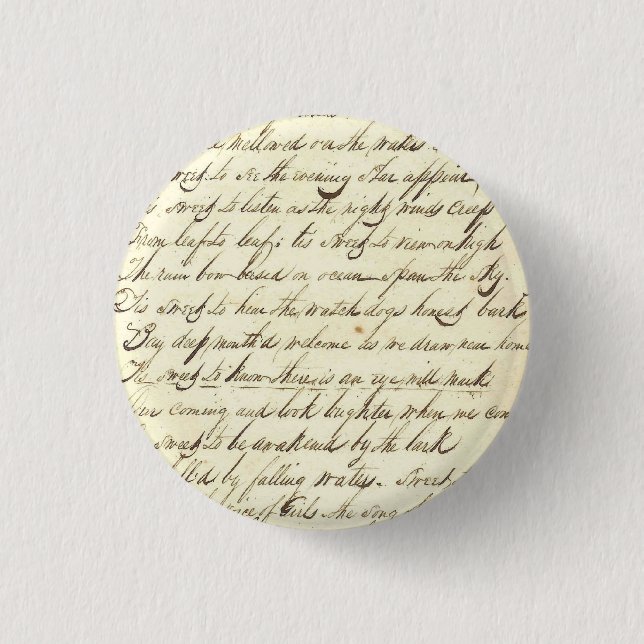 mellowed o'er the water
sweet to see the evening Star appear
sweet to listen as the night winds Creep
From leaf to leaf; tis sweet to view on high
The rain bow based on ocean Span the Sky.
Tis sweet to hear the watch dogs honest bark
Bay deep mouth'd welcome as we draw near home
Tis sweet to know there is an eye will mark
Our coming and look brighter when we com
sweet to be awakened by the lark
by falling waters. Sweet
of Girls the Song of